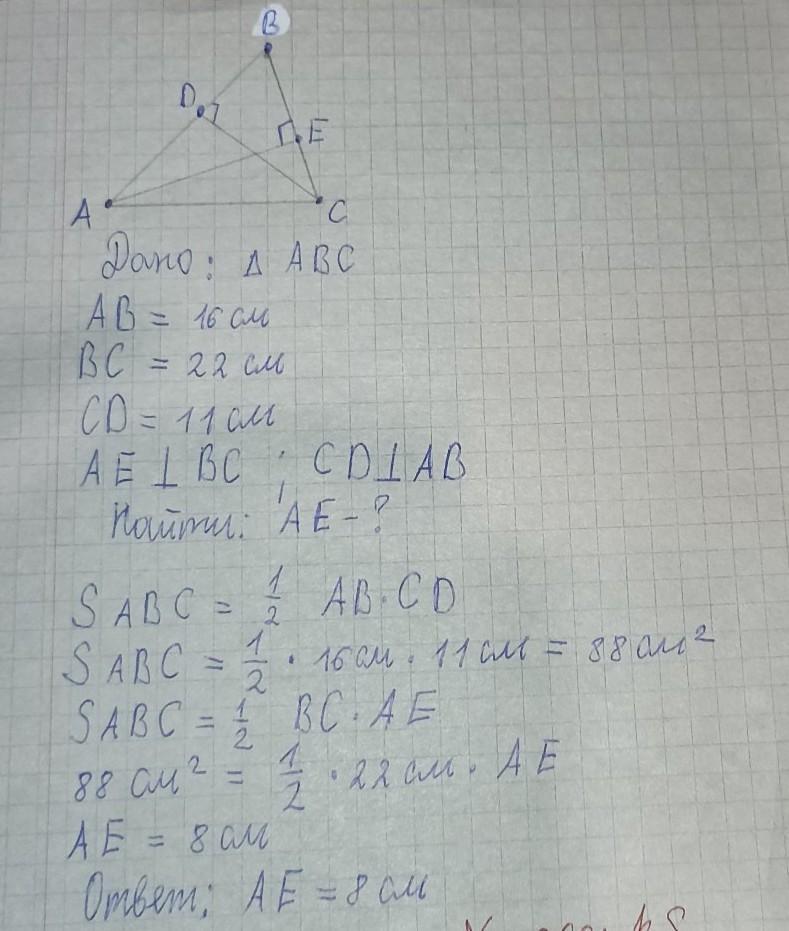 B
D
E
A
C
Дано: Δ ABC
AB = 16 см
BC = 22 см
CD = 11 см
AE ⊥ BC ; CD ⊥ AB
Найти: AE - ?
S ABC = 1/2 AB · CD
S ABC = 1/2 · 16 см · 11 см = 88 см²
S ABC = 1/2 BC · AE
88 см² = 1/2 · 22 см · AE
AE = 8 см
Ответ: AE = 8 см